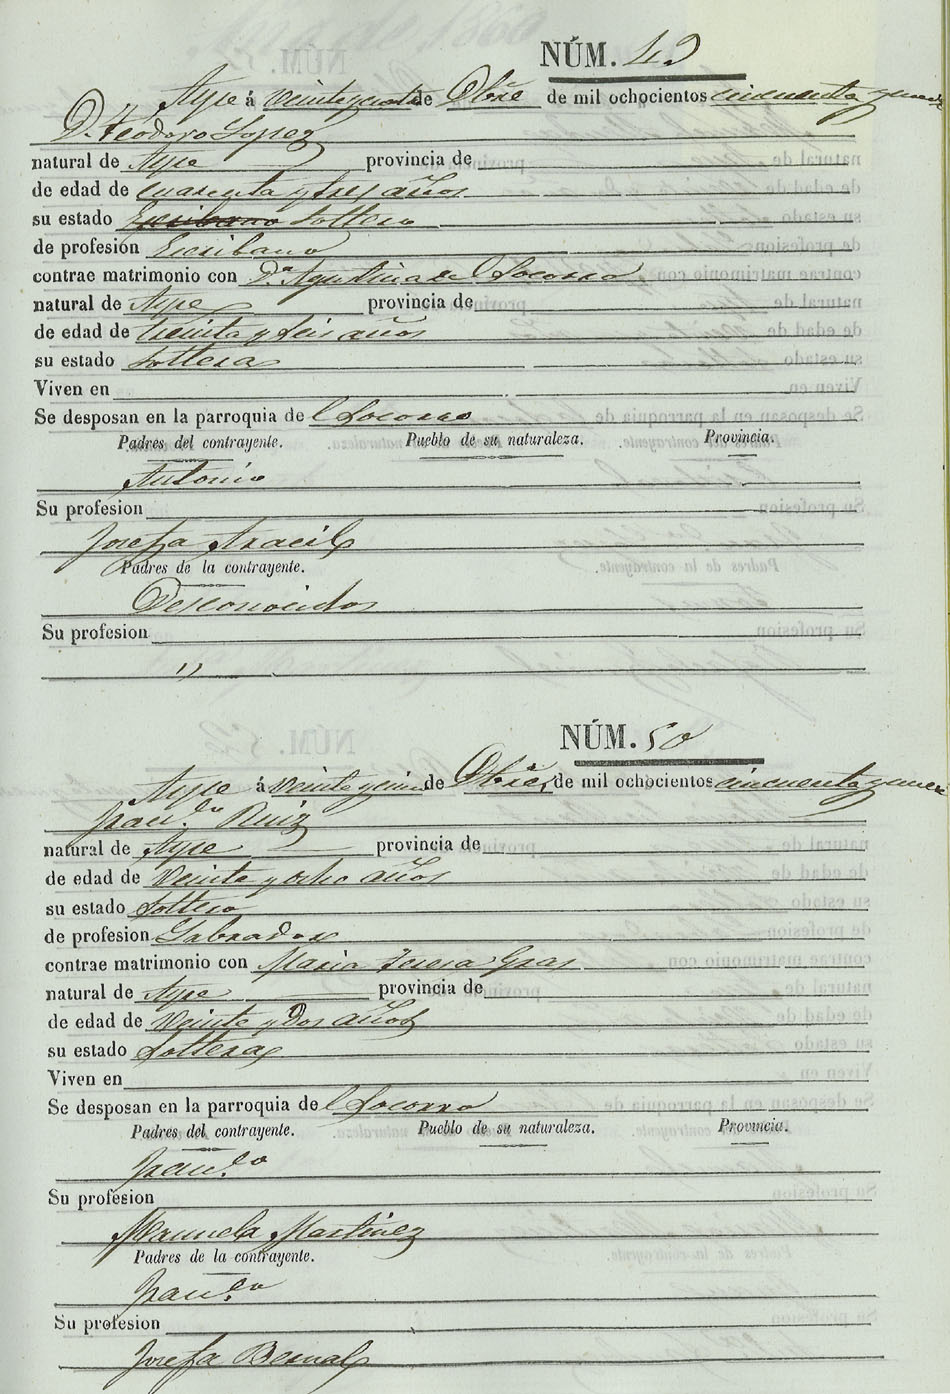 NÚM. 49
Aspe á veinteycuatro de Obre de mil ochocientos cincuenta y nueve
Dn. Teodoro Lopez
natural de Aspe provincia de
de edad de cuarenta y tres años
su estado Escribano Soltero
de profesión Escribano
contrae matrimonio con Da. Agustina del Socorro
natural de Aspe provincia de
de edad de treinta y seis años
su estado Soltera
Viven en
Se desposan en la parroquia del Socorro
Padres del contrayente. Pueblo de su naturaleza. Provincia.
Antonio
Su profesion
Josefa Aracil
Padres de la contrayente.
Desconocidos
Su profesion
"
NÚM. 50
Aspe á veinteycinco de Obre de mil ochocientos cincuenta y nueve
Franco. Ruiz
natural de Aspe provincia de
de edad de veinte y ocho años
su estado Soltero
de profesion Labrador
contrae matrimonio con Maria Teresa Gras
natural de Aspe provincia de
de edad de veinte y dos años
su estado Soltera
Viven en
Se desposan en la parroquia del Socorro
Padres del contrayente. Pueblo de su naturaleza. Provincia.
Franco.
Su profesion
Manuela Martinez
Padres de la contrayente.
Franco.
Su profesion
Josefa Bernal